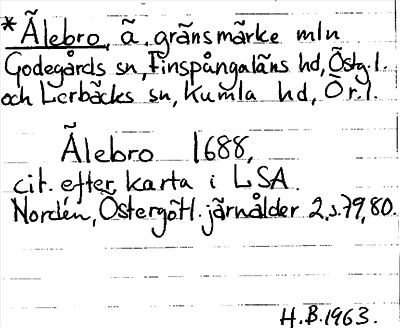 *Ãlebro, ã. gränsmärke mln
Godegårds sn, Finspångaläns hd, Östg.l.
och Lerbäcks sn, Kumla hd, Ör.l.
Ãlebro 1688,
cit. efter karta i LSA.
Nordén, Östergötl. järnålder 2, s. 79, 80.
H.B. 1963.